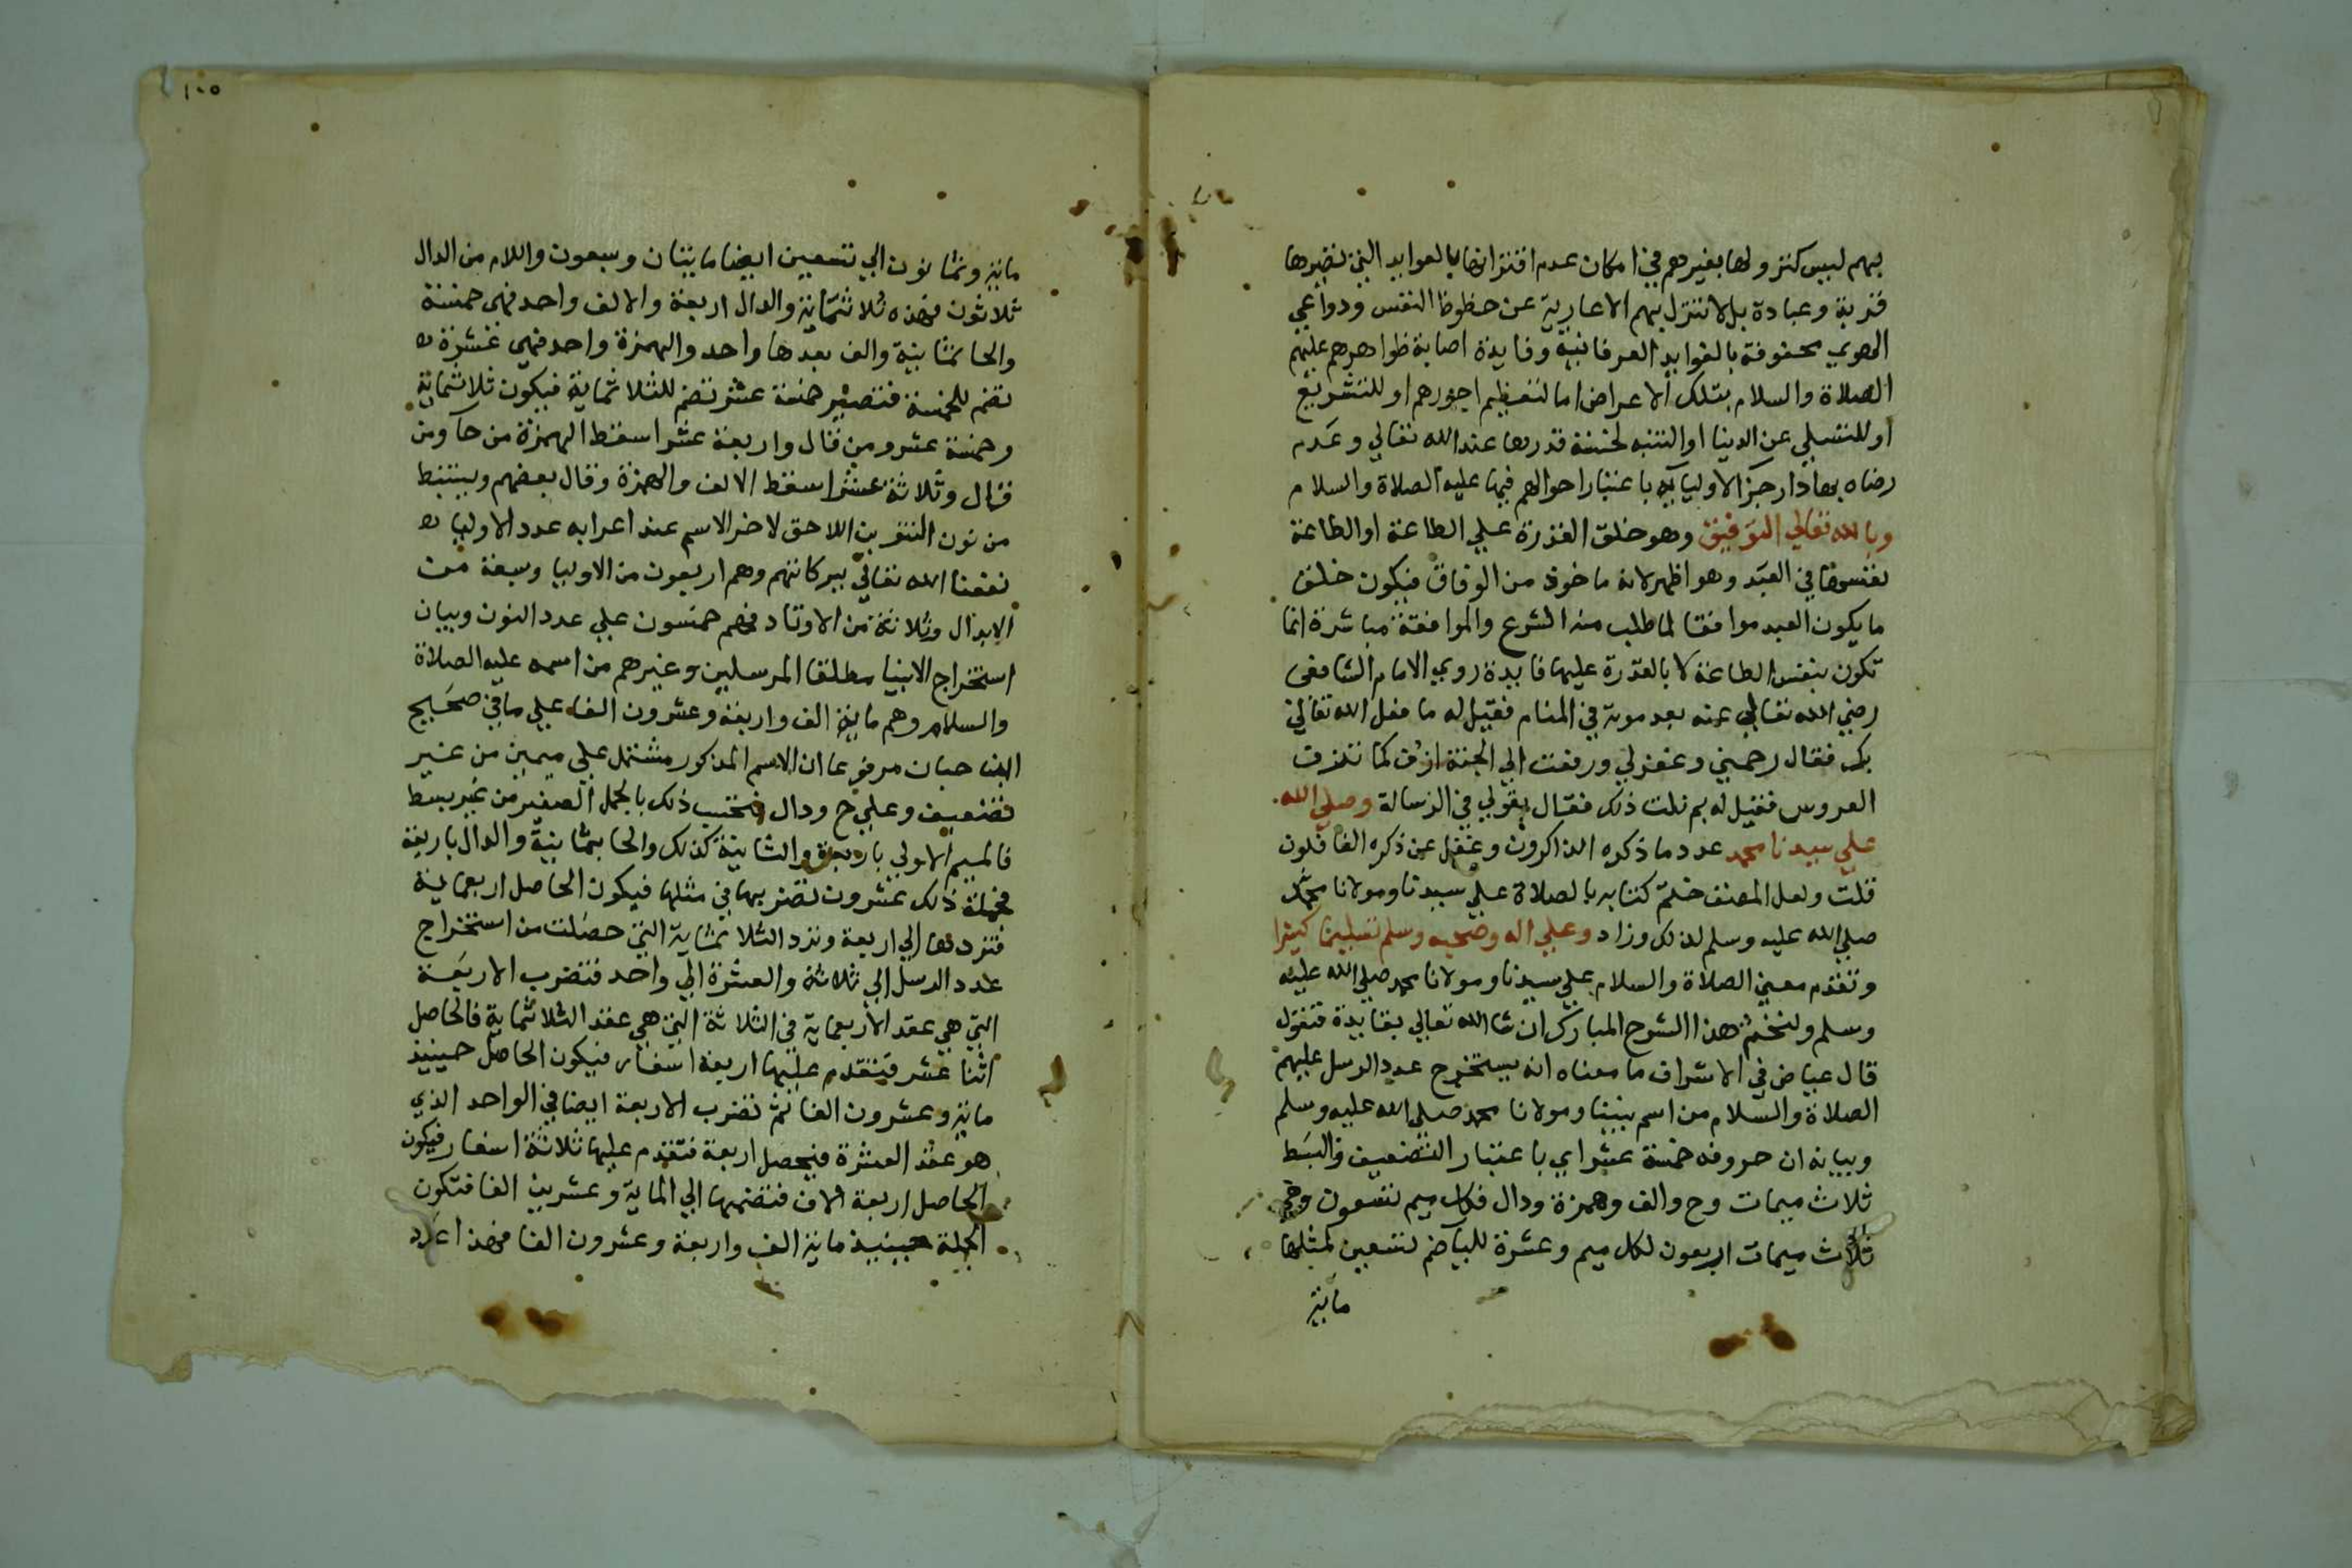 بهم ليس كنزولها بغيرهم في امكان عدم اقترانها بالفوايد التي تصيرها
قربة وعبادة بل لا تنزل بهم الا عارية عن حظوظ النفس ودواعي
الهوي محفوفة بالفوايد العرفانية وفايدة اصابة ظواهرهم عليهم
الصلاة والسلام بتلك الاعراض اما لتعظيم اجورهم او للتشريع
او للتسلي عن الدنيا او التنبه لخسة قدرها عند الله تعالي وعدم
رضاه بها دار جزا لاوليايه باعتبار احوالهم فيها عليه الصلاة والسلام
وبالله تعالي التوفيق وهو خلق القدرة علي الطاعة او الطاعة
نفسها في العبد وهو اظهر لانه ماخوذ من الوفاق فيكون خلق
ما يكون العبد موافقا لما طلب منه الشرع والموافقة مباشرة انما
تكون بنفس الطاعة لا بالقدرة عليها فايدة روي الامام الشافعي
رضي الله تعالي عنه بعد موته في المنام فقيل له ما فعل الله تعالي
بك فقال رحمني وغفرلي ورفعت الي الجنة ازف كما تزف
العروس فقيل له بم نلت ذلك فقال بقولي في الرسالة وصلي الله
علي سيدنا محمد عدد ما ذكره الذاكرون وغفل عن ذكره الغافلون
قلت ولعل المصنف ختم كتابه بالصلاة علي سيدنا ومولانا محمد
صلي الله عليه وسلم لذلك وزاد وعلي اله وصحبه وسلم تسليما كثيرا
وتقدم معني الصلاة والسلام علي سيدنا ومولانا محمد صلي الله عليه
وسلم ولنختم هذا الشرح المبارك ان شا الله تعالي بفايدة فنقول
قال عياض في الاشراف ما معناه انه يستخرج عدد الرسل عليهم
الصلاة والسلام من اسم نبينا ومولانا محمد صلي الله عليه وسلم
وبيانه ان حروفه خمسة عشر اي باعتبار التضعيف والبسط
ثلاث ميمات وح والف وهمزة ودال فكل ميم تسعون وفي
ثلاث ميمات اربعون لكل ميم وعشرة لليا ضم تسعين لمثلها
ماية
١٠٥
ماية وثمانون الي تسعين ايضا مايتان وسبعون واللام من الدال
ثلاثون فهذه ثلاثماية والدال اربعة والالف واحد فهي خمسة
والحا ثمانية والف بعدها واحد والهمزة واحد فهي عشرة
تضم للخمسة فتصير خمسة عشر تضم للثلاثماية فيكون ثلاثماية
وخمسة عشر ومن قال واربعة عشر اسقط الهمزة من حا ومن
قال وثلاثة عشر اسقط الالف والهمزة وقال بعضهم ويستنبط
من نون التنوين اللاحق لاخر الاسم عند اعرابه عدد الاوليا
نفعنا الله تعالي ببركاتهم وهم اربعون من الاوليا وسبعة من
الابدال وثلاثة من الاوتاد فهم خمسون علي عدد النون وبيان
استخراج الانبيا مطلقا المرسلين وغيرهم من اسمه عليه الصلاة
والسلام وهم ماية الف واربعة وعشرون الفا علي ما في صحيح
ابن حبان مرفوعا ان الاسم المذكور مشتمل علي ميمين من غير
تضعيف وعلي ح ودال فتحتسب ذلك بالجمل الصغير من غير بسط
فالميم الاولي باربعة والثانية كذلك والحا بثمانية والدال باربعة
فجملة ذلك عشرون تضربها في مثلها فيكون الحاصل اربعماية
فتردها الي اربعة وترد الثلاثماية التي حصلت من استخراج
عدد الرسل الي ثلاثة والعشرة الي واحد فتضرب الاربعة
التي هي عقد الاربعماية في الثلاثة التي هي عقد الثلاثماية فالحاصل
اثنا عشر فتقدم عليها اربعة اسفار فيكون الحاصل حينيذ
ماية وعشرون الفا ثم تضرب الاربعة ايضا في الواحد الذي
هو عقد العشرة فيحصل اربعة فتقدم عليها ثلاثة اسفار فيكون
الحاصل اربعة الاف فتضمها الي الماية وعشرين الفا فتكون
الجملة حينيذ ماية الف واربعة وعشرون الفا فهذا عدد